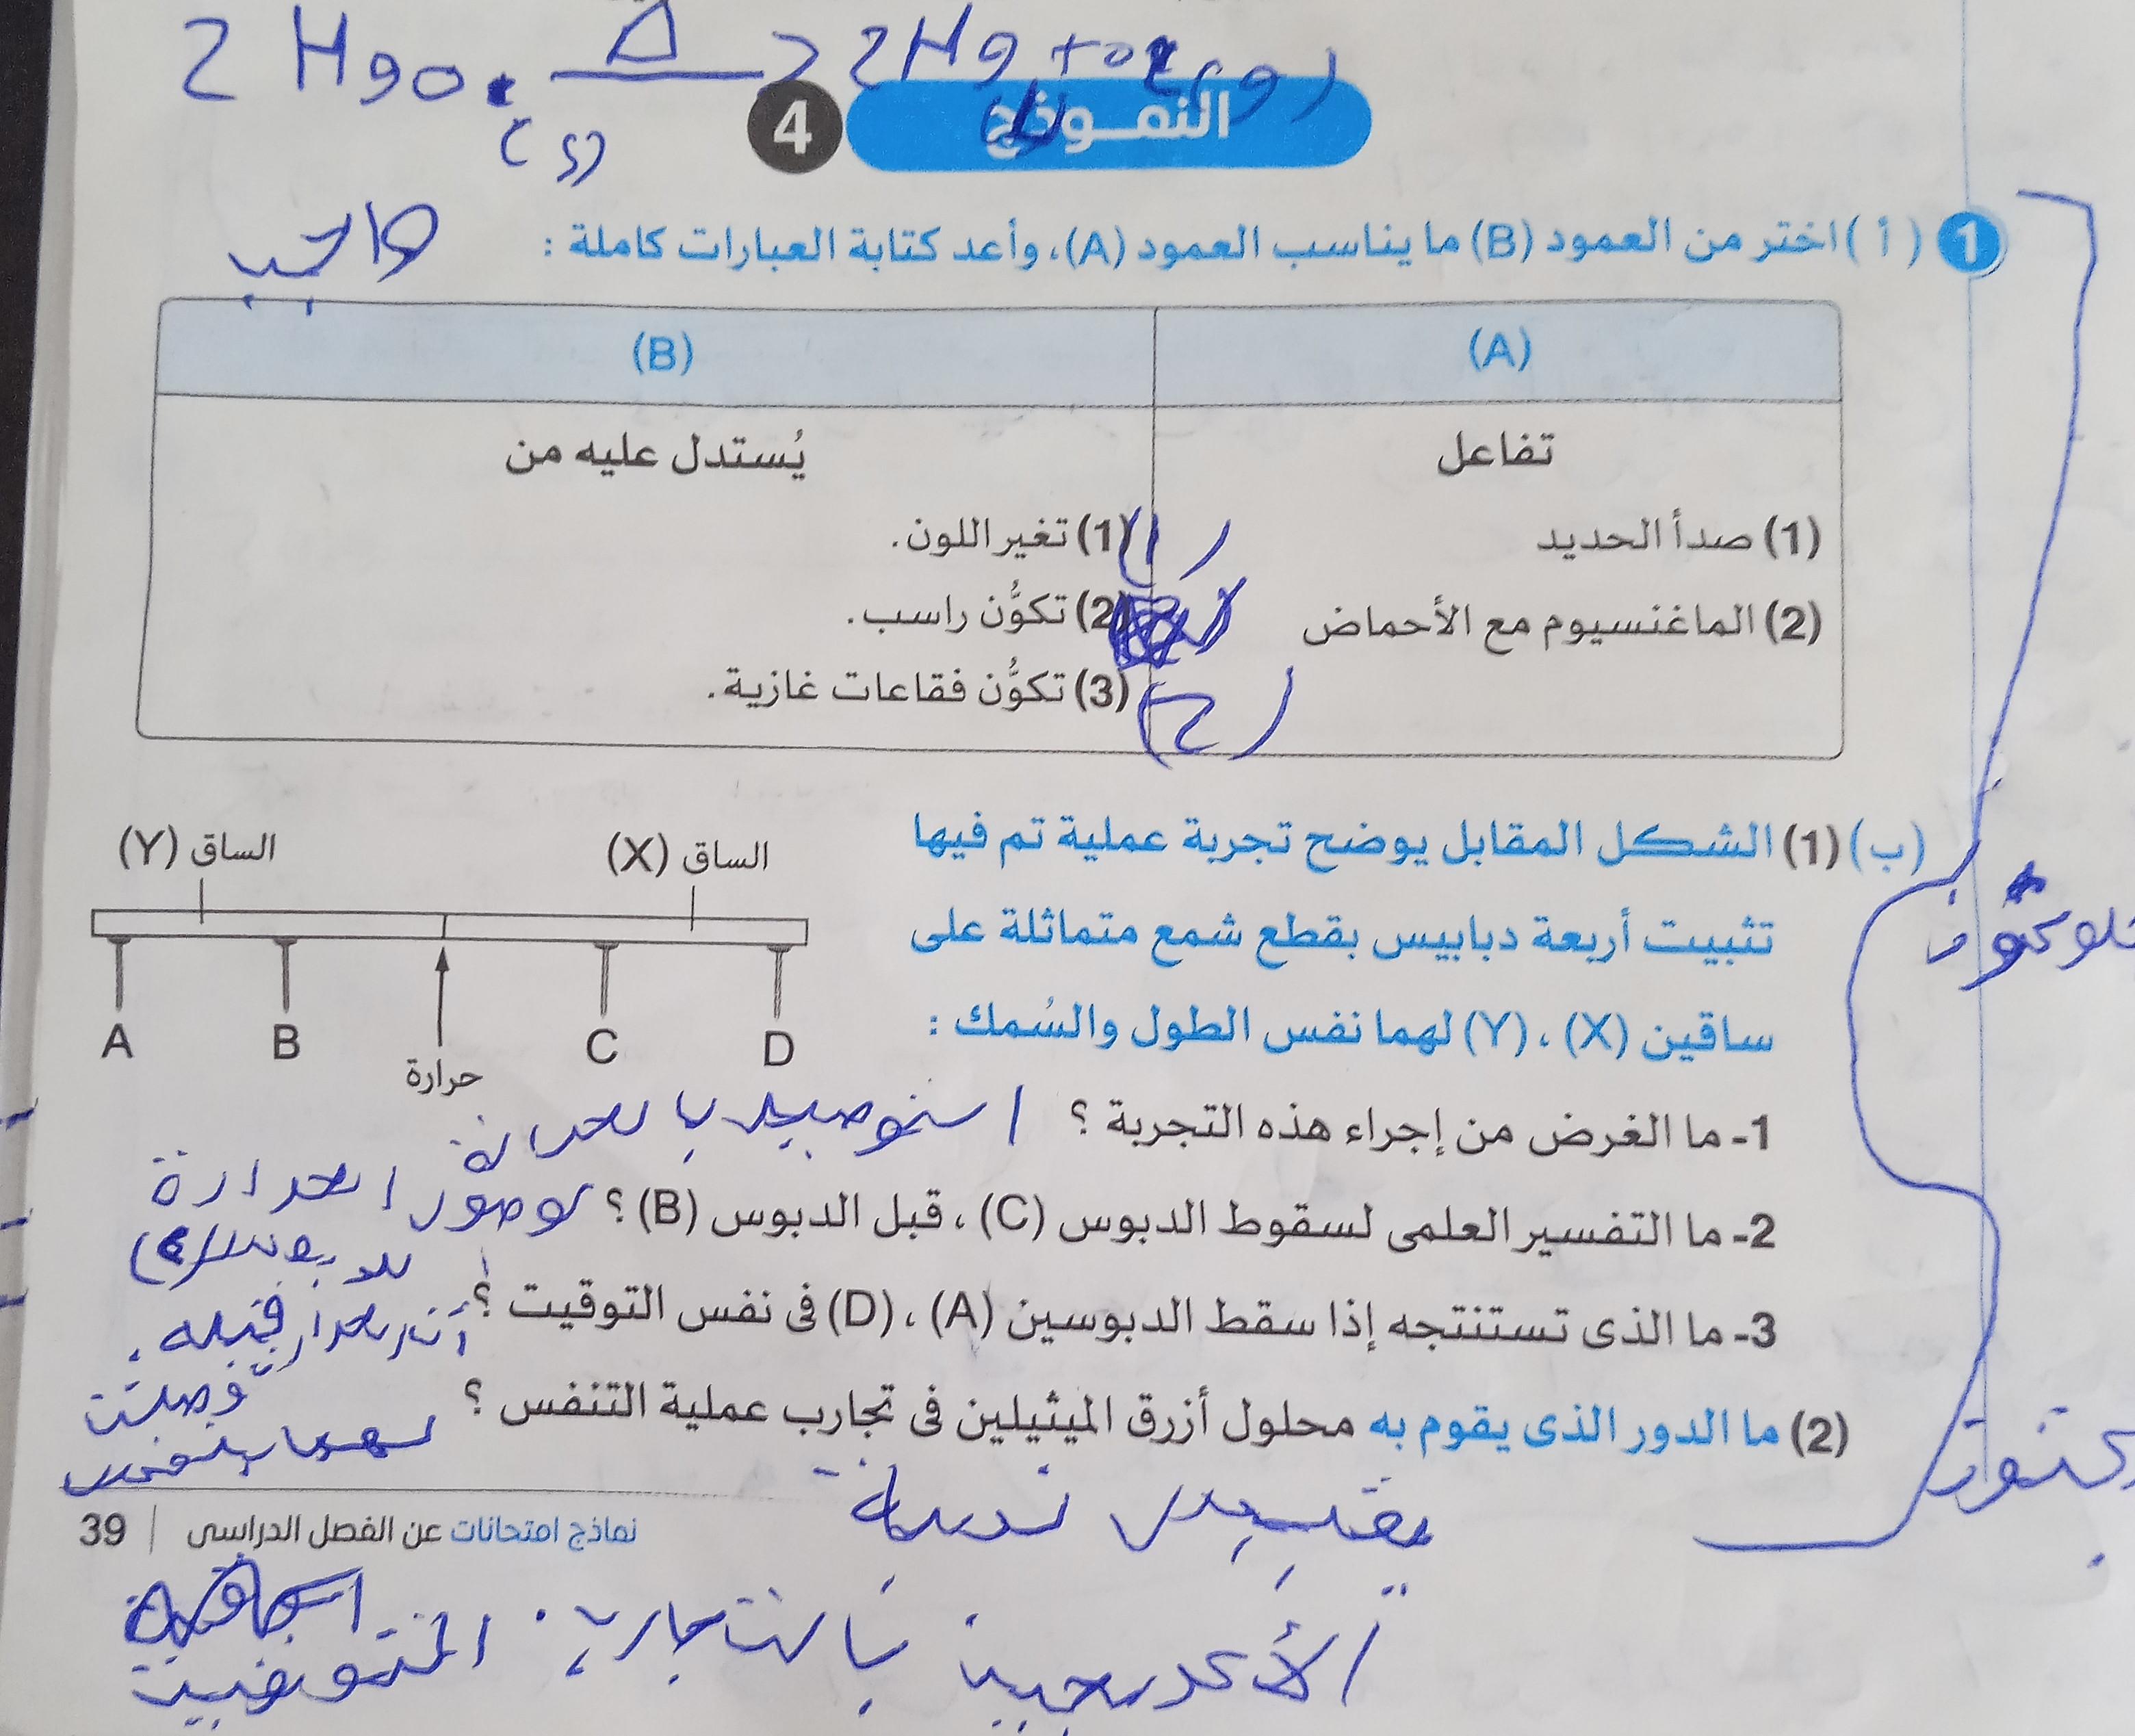 2 HgO (s) Δ 2Hg + O2 (g)
النموذج 4
واجب
1 ( أ ) اختر من العمود (B) ما يناسب العمود (A)، وأعد كتابة العبارات كاملة :
(A) (B)
تفاعل يُستدل عليه من
(1) صدأ الحديد (1) تغير اللون. (1)
(2) الماغنسيوم مع الأحماض (2) تكوُّن راسب.
(3) تكوُّن فقاعات غازية. (2)
(ب) (1) الشكل المقابل يوضح تجربة عملية تم فيها
تثبيت أربعة دبابيس بقطع شمع متماثلة على
ساقين (X) ، (Y) لهما نفس الطول والسُمك :
الساق (Y) الساق (X)
A B C D
حرارة
1- ما الغرض من إجراء هذه التجربة ؟
2- ما التفسير العلمى لسقوط الدبوس (C) ، قبل الدبوس (B) ؟ لوصول الحرارة
قبله.
3- ما الذى تستنتجه إذا سقط الدبوسين (A) ، (D) فى نفس التوقيت ؟ أن الحرارة
وصلت
لهما بنفس
(2) ما الدور الذى يقوم به محلول أزرق الميثيلين فى تجارب عملية التنفس ؟
نسبة
الأكسجين بالتجارب.
نماذج امتحانات عن الفصل الدراسى | 39